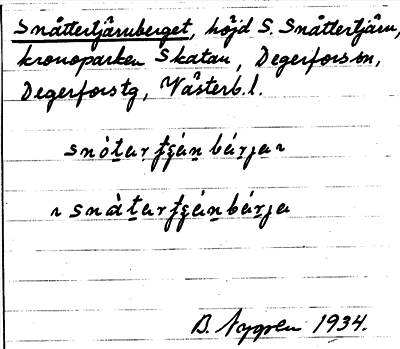 Snåttertjärnberget, höjd S. Snåttertjärn,
kronoparken Skatan, Degerforssn,
Degerforstg, Västerb.l.
snòt̲ar ʈʂän bárjaᴤ
ᴤ snàt̲ar ʈʂän bárja
B. Nygren 1934.